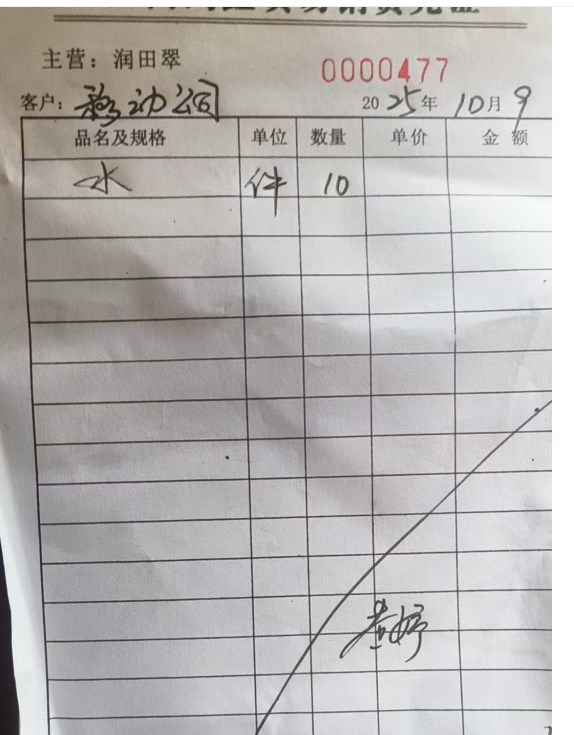 主营：润田翠
0000477
客户：移动公司 2025年10月9
品名及规格 单位 数量 单价 金额
水 件 10